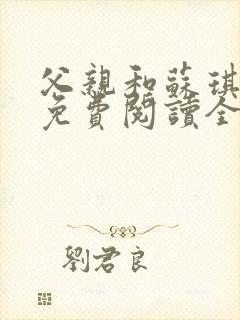 父親和蘇琪
免費閱讀全
劉君良